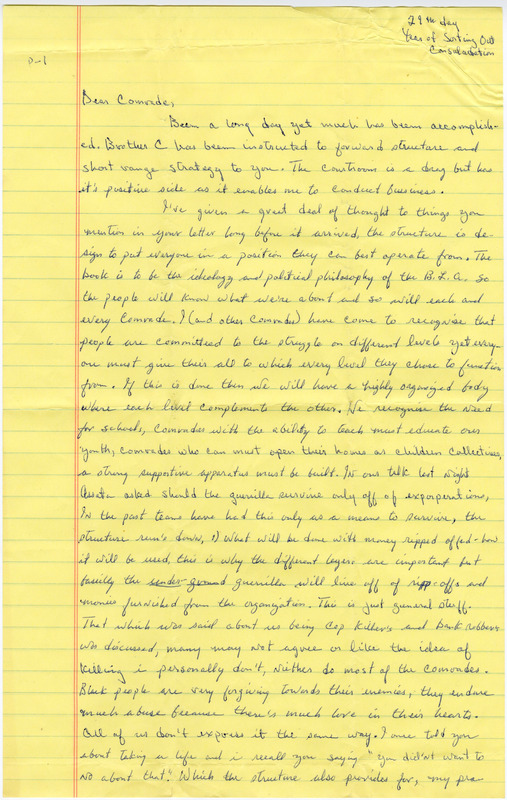 29th day
Year of Sorting Out
Consolidation
D-1
Dear Comrade,
Been a long day yet much has been accomplish-
ed. Brother C has been instructed to forward structure and
short range strategy to you. The courtroom is a drag but has
it's positive side as it enables me to conduct business.
I've given a great deal of thought to things you
mention in your letter long before it arrived, the structure is de-
sign to put everyone in a position they can best operate from. The
book is to be the ideology and political philosophy of the B.L.A. so
the people will know what we're about and so will each and
every Comrade. I (and other Comrades) have come to recognise that
people are committed to the struggle on different levels yet every-
one must give their all to which every level they chose to function
from. If this is done then we will have a highly organized body
where each level complements the other. We recognise the need
for schools, comrades with the ability to teach must educate our
youth, comrades who can must open their homes as children collectives,
a strong supportive apparatus must be built. In our talk last night
asked should the guerilla survive only off of exporperations,
In the past teams have had this only as a means to survive, the
structure run's down, 1) What will be done with money ripped offed - how
it will be used, this is why the different layers are important but
basiclly the under-ground guerrilla will live off of ripp-offs and
monies furnished from the organization. This is just general stuff.
That which was said about us being Cop Killer's and bank robbers
was discussed, many may not agree or like the idea of
killing i personally don't, niether do most of the comrades.
Black people are very forgiving towards their enemies, they endure
much abuse because there's much love in their hearts.
All of us don't express it the same way. I once told you
about taking a life and i recall you saying "you did'nt want to
no about that". Which the structure also provides for, my pra-